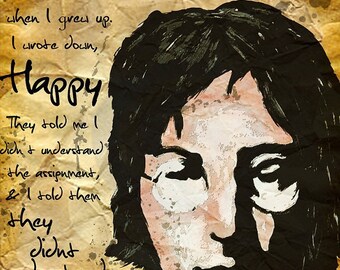 when I grew up.
I wrote down,
Happy
They told me I
didn't understand
the assignment,
& I told them
they
didnt